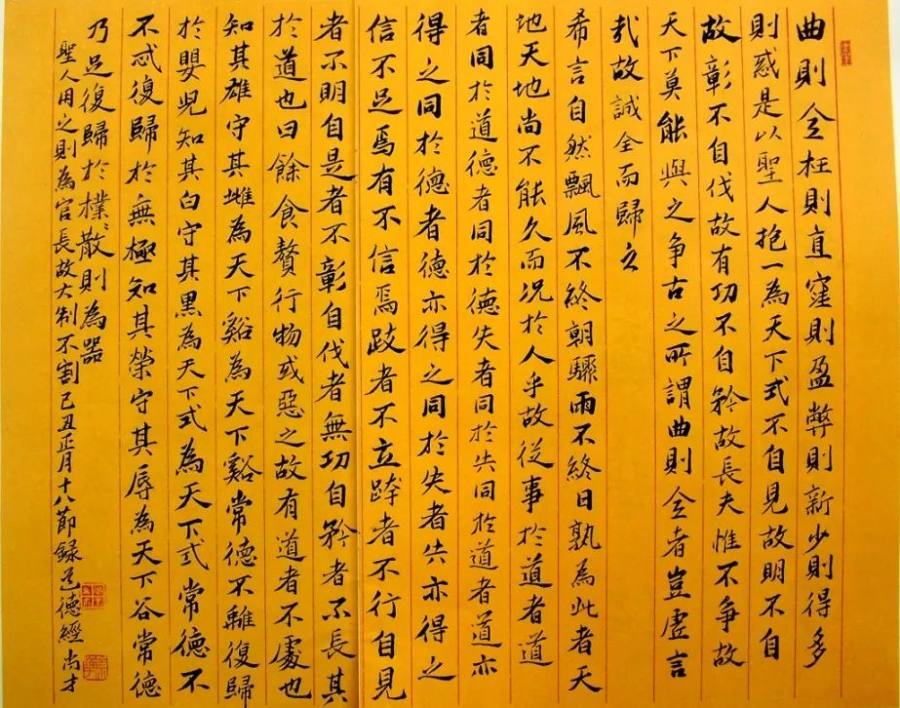 曲則全枉則直窪則盈弊則新少則得多
則惑是以聖人抱一為天下式不自見故明不自
故彰不自伐故有功不自矜故長夫惟不争故
天下莫能與之争古之所謂曲則全者豈虛言
哉故誠全而歸之
希言自然飄風不終朝驟雨不終日孰為此者天
地天地尚不能久而况於人乎故從事於道者道
者同於道德者同於德失者同於失同於道者道亦
得之同於德者德亦得之同於失者失亦得之
信不足焉有不信焉跂者不立跨者不行自見
者不明自是者不彰自伐者無功自矜者不長其
於道也曰餘食贅行物或惡之故有道者不處也
知其雄守其雌為天下谿為天下谿常德不離復歸
於嬰兒知其白守其黑為天下式為天下式常德不
不忒復歸於無極知其榮守其辱為天下谷常德
乃足復歸於樸〻散則為器
聖人用之則為官長故大制不割己丑正月十八節録道德經尚才